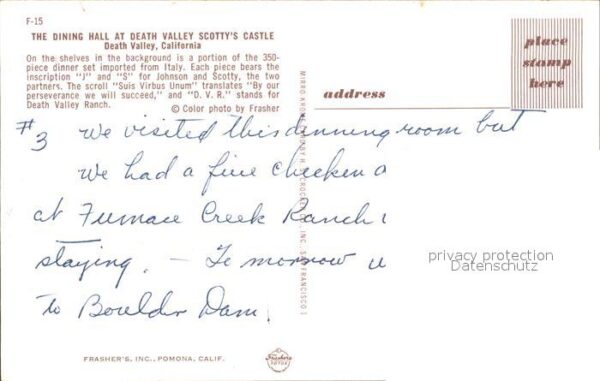 F-15
THE DINING HALL AT DEATH VALLEY SCOTTY'S CASTLE
Death Valley, California
On the shelves in the background is a portion of the 350-
piece dinner set imported from Italy. Each piece bears the
inscription "J" and "S" for Johnson and Scotty, the two
partners. The scroll "Suis Virbus Unum" translates "By our
perseverance we will succeed," and "D. V. R." stands for
Death Valley Ranch.
© Color photo by Frasher
place
stamp
here
address
#3 We visited this dinning room but
we had a fine chicken
at Furnace Creek Ranch
staying. – To morrow
to Boulder Dam.
privacy protection
Datenschutz
FRASHER'S, INC., POMONA, CALIF.
Frashers
FOTOS